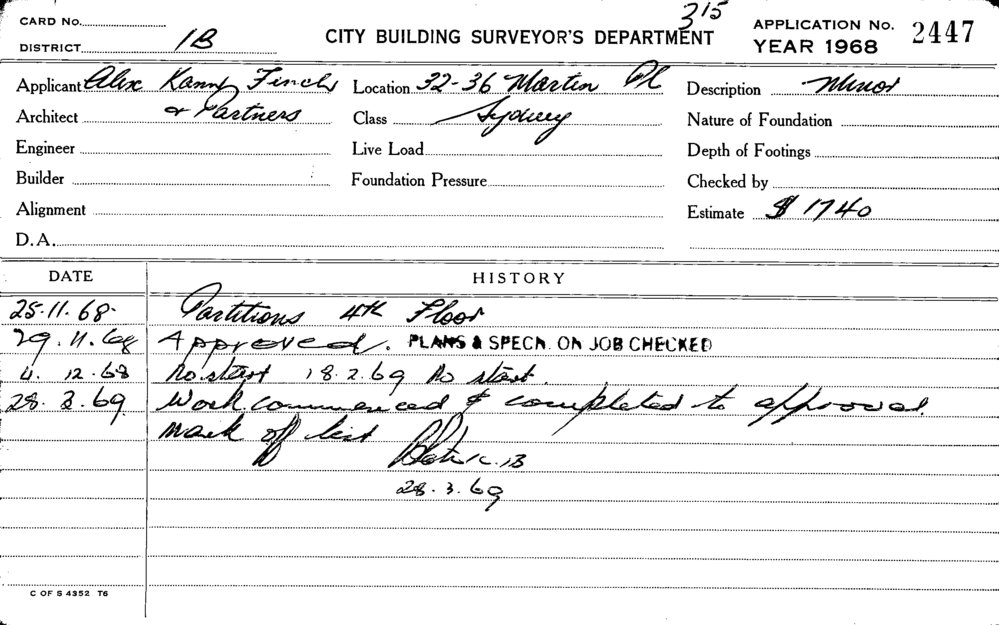 315
CARD No.
DISTRICT 1B
CITY BUILDING SURVEYOR'S DEPARTMENT
APPLICATION No. 2447
YEAR 1968
Applicant Alex Kann Finch Location 32-36 Martin Pl Description Minor
Architect & Partners Class Sydney Nature of Foundation
Engineer Live Load Depth of Footings
Builder Foundation Pressure Checked by
Alignment Estimate $ 1740
D.A.
DATE HISTORY
25.11.68. Partitions 4th Floor
29.11.68 Approved. PLANS & SPECN. ON JOB CHECKED
4. 12.68 No start 18.2.69 No start.
28. 3.69 Work commenced & completed to approval.
Mark off list
28.3.69
C OF S 4352 T6